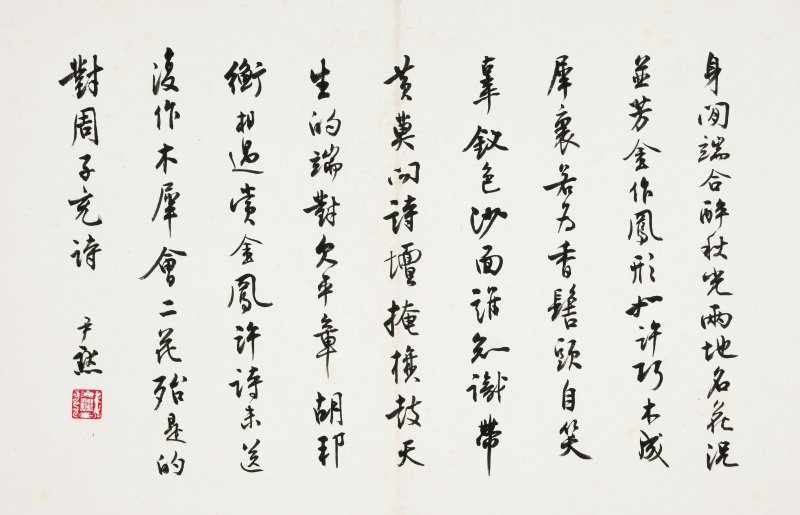 身閒端合醉秋光兩地名花況
並芳金作鳳形如許巧木成
犀裏若为香髻頭自笑
辜釵色沙面誰忽識帶
黄莫问詩壇掩檟鼓天
生的端對欠平章胡邦
衡相過賞金鳳許詩未送
後作木犀會二花殆是的
對周子充詩
尹默